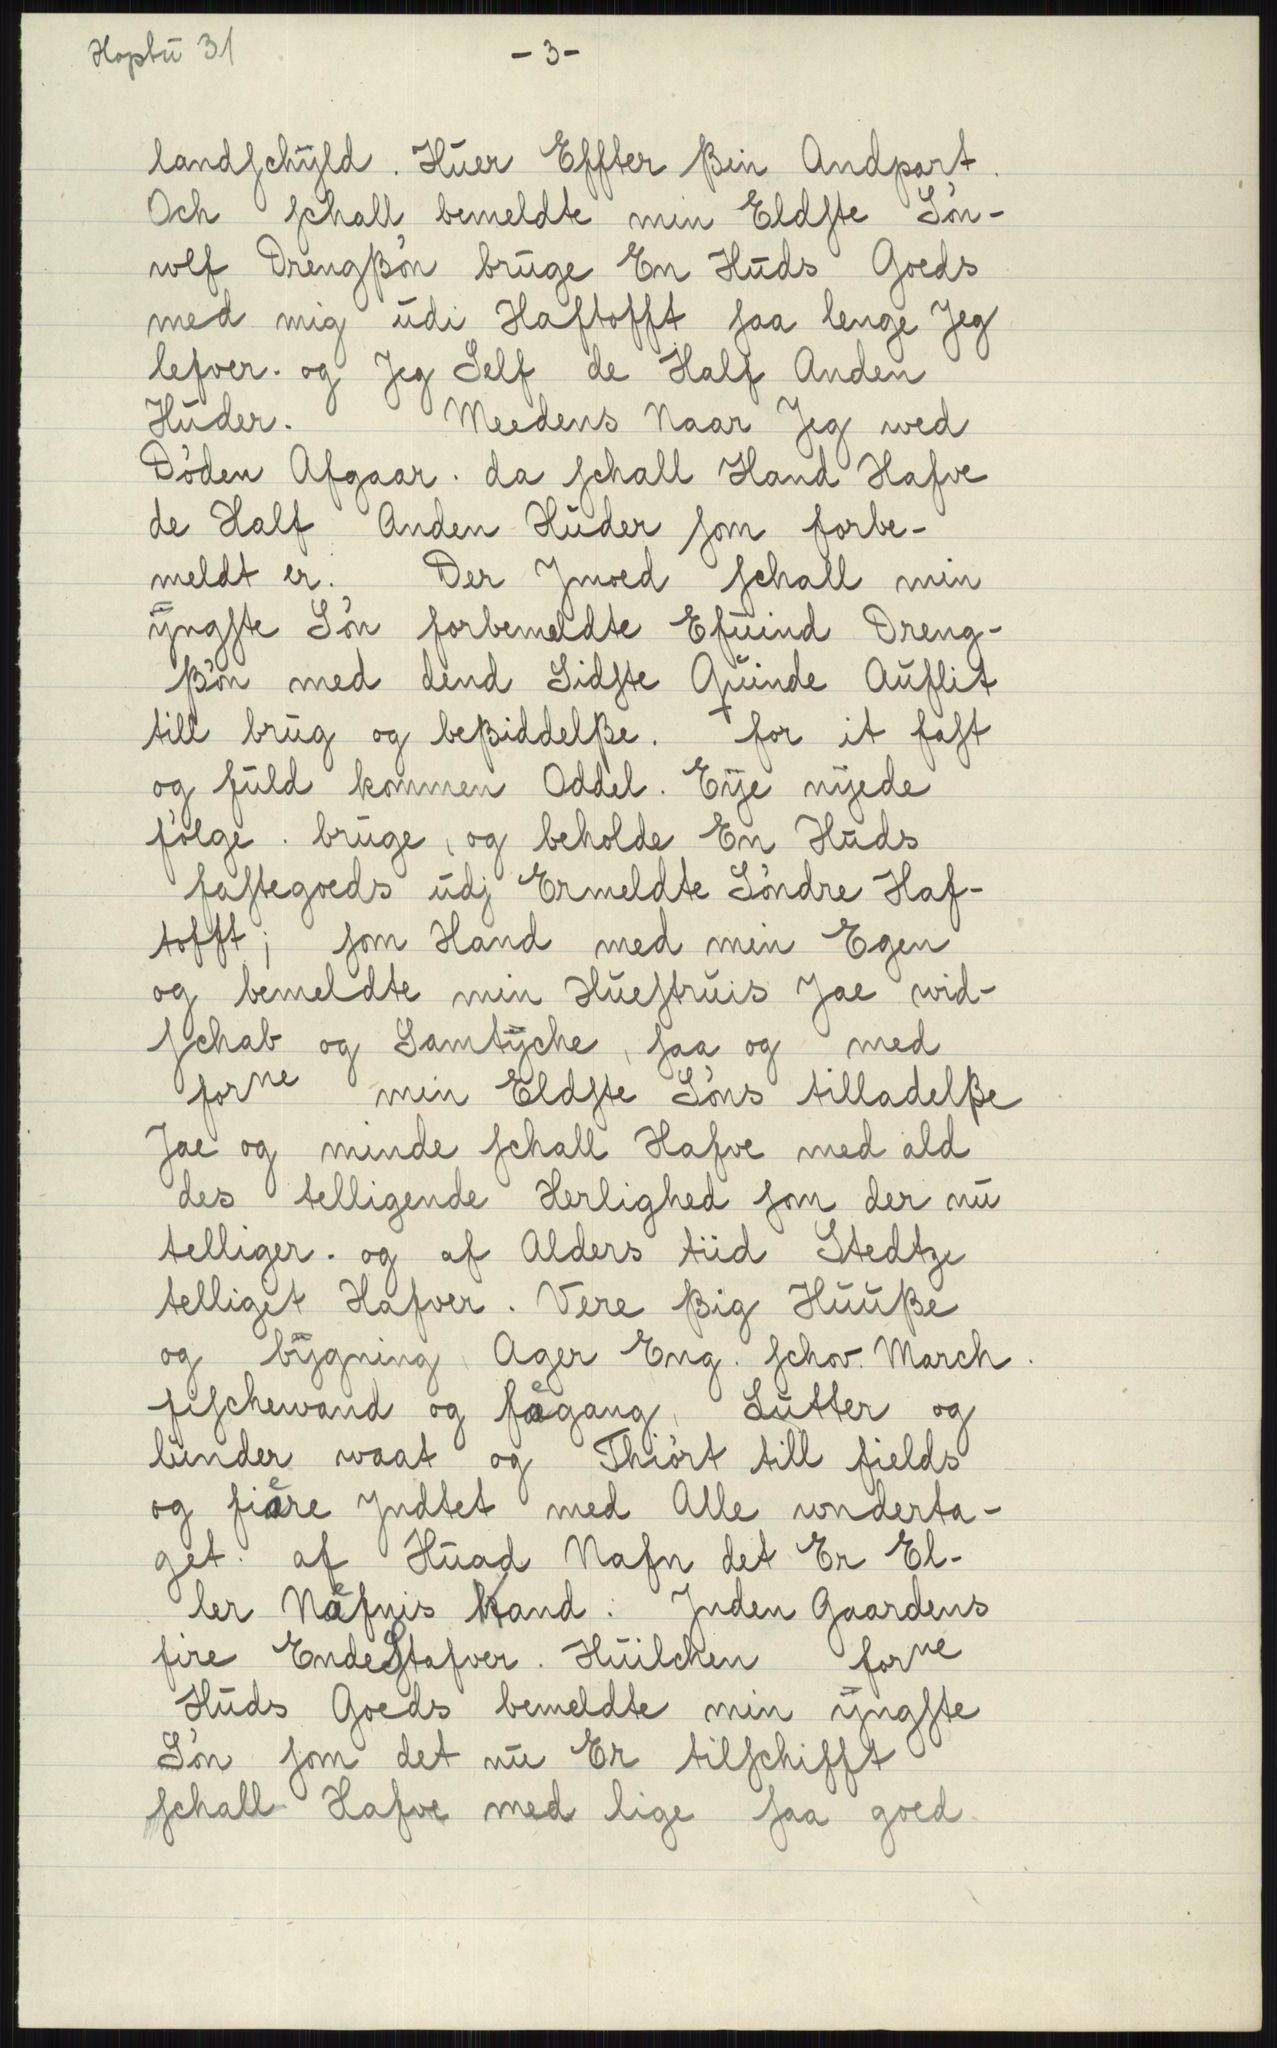 Hopbü 31
- 3 -
landschÿld. Hüer Effter ßin Andpart.
Och schall bemeldte min Eldste Sön-
wlf Drengßön brüge En Hüds Goeds
med mig üdi Haftofft saa lenge Jeg
lefver. og Jeg Self de Half Anden
Hüder. Meedens Naar Jeg wed
Döden Afgaar. da schall Hand Hafve
de Half Anden Hüder som forbe-
meldt er. Der Jmoed schall min
ÿngste Sön forbemeldte Efüind Dreng-
ßön med dend Sidste Qüinde Aüflit
till brüg og beßiddelße. for it fast
og füld kommen Oddel. Eÿe nÿede
fölge. brüge, og beholde En Hüds
fastegoeds üdj Ermeldte Söndre Haf-
tofft; som Hand med min Egen
og bemeldte min Hüestrüis Jae wid-
schab og Samtÿche, saa og med
forne min Eldste Söns tilladelße
Jae og minde schall Hafve med ald
des telligende Herlighed som der nü
telliger. og af Alders tiid Stedtze
telliget Hafver. Vere ßig Hüüße
og bÿgning, Ager Eng. schov. March.
fischewand og fægang, Lütter og
lünder waat og Thiört till fields
og fiære Jndtet med Alle wnderta-
get. af Hüad Nafn det Er El-
ler Næfnis kand. Jnden Gaardens
fire EndeStafver. Hüilchen forne
Hüds Goeds bemeldte min ÿngste
Sön som det nü Er tilschifft
schall Hafve med lige saa goed